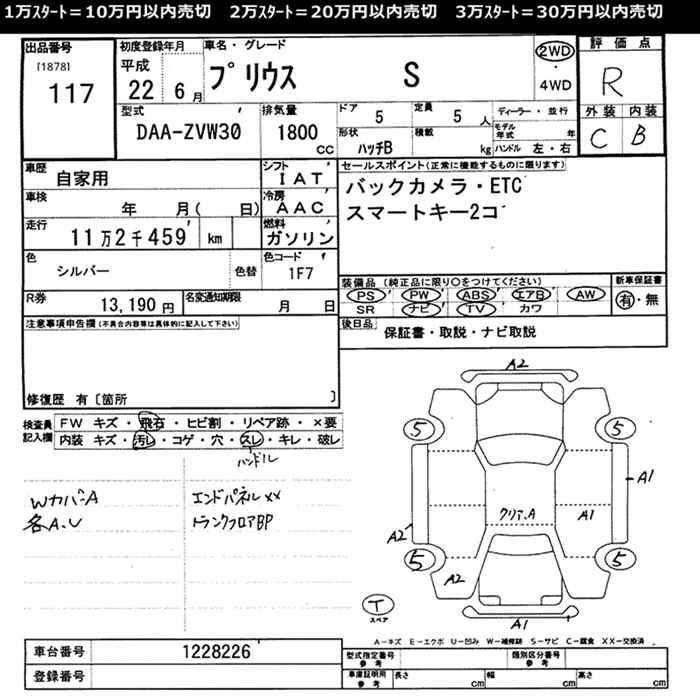 1万スタート=10万円以内売切 2万スタート=20万円以内売切 3万スタート=30万円以内売切
出品番号
[1878]
117
初度登録年月
平成
22年 6月
車名・グレード
プリウス S
2WD
・
4WD
評価点
R
外装 内装
C B
型式
DAA-ZVW30
排気量
1800
CC
ドア 5
定員 5 人
形状 ハッチB
積載 kg
ディーラー・並行
モデル年式 年
ハンドル 左・右
車歴 自家用
シフト IAT
車検 年 月( 日)
冷房 AAC
走行 11万2千459 km
燃料 ガソリン
色 シルバー 色替
色コード 1F7
R券 13,190円
名変通知期限 月 日
セールスポイント(正常に機能するものに限ります)
バックカメラ・ETC
スマートキー2コ
装備品 (純正品に限り○をつけてください)
PS PW ABS エアB AW
SR ナビ TV カワ
新車保証書
有・無
後日品 保証書・取説・ナビ取説
注意事項申告欄(不具合内容等は具体的に記入して下さい)
修復歴 有〔箇所 〕
検査員記入欄
FW キズ・飛石・ヒビ割・リペア跡・×要
内装 キズ・汚レ・コゲ・穴・スレ・キレ・破レ
ハンドル
WカバーA
各A.U
エンドパネルXX
トランクフロアBP
A2
5
5
A1
A2
クリア.A
A1
5
5
A2
T
スペア
A1
A-キズ E-エクボ U-凹み W-補修跡 S-サビ C-腐食 XX-交換済
車台番号 1228226
登録番号
型式指定番号 参考
類別区分番号 参考
車庫証明用 参考
長さ cm 幅 cm 高さ cm